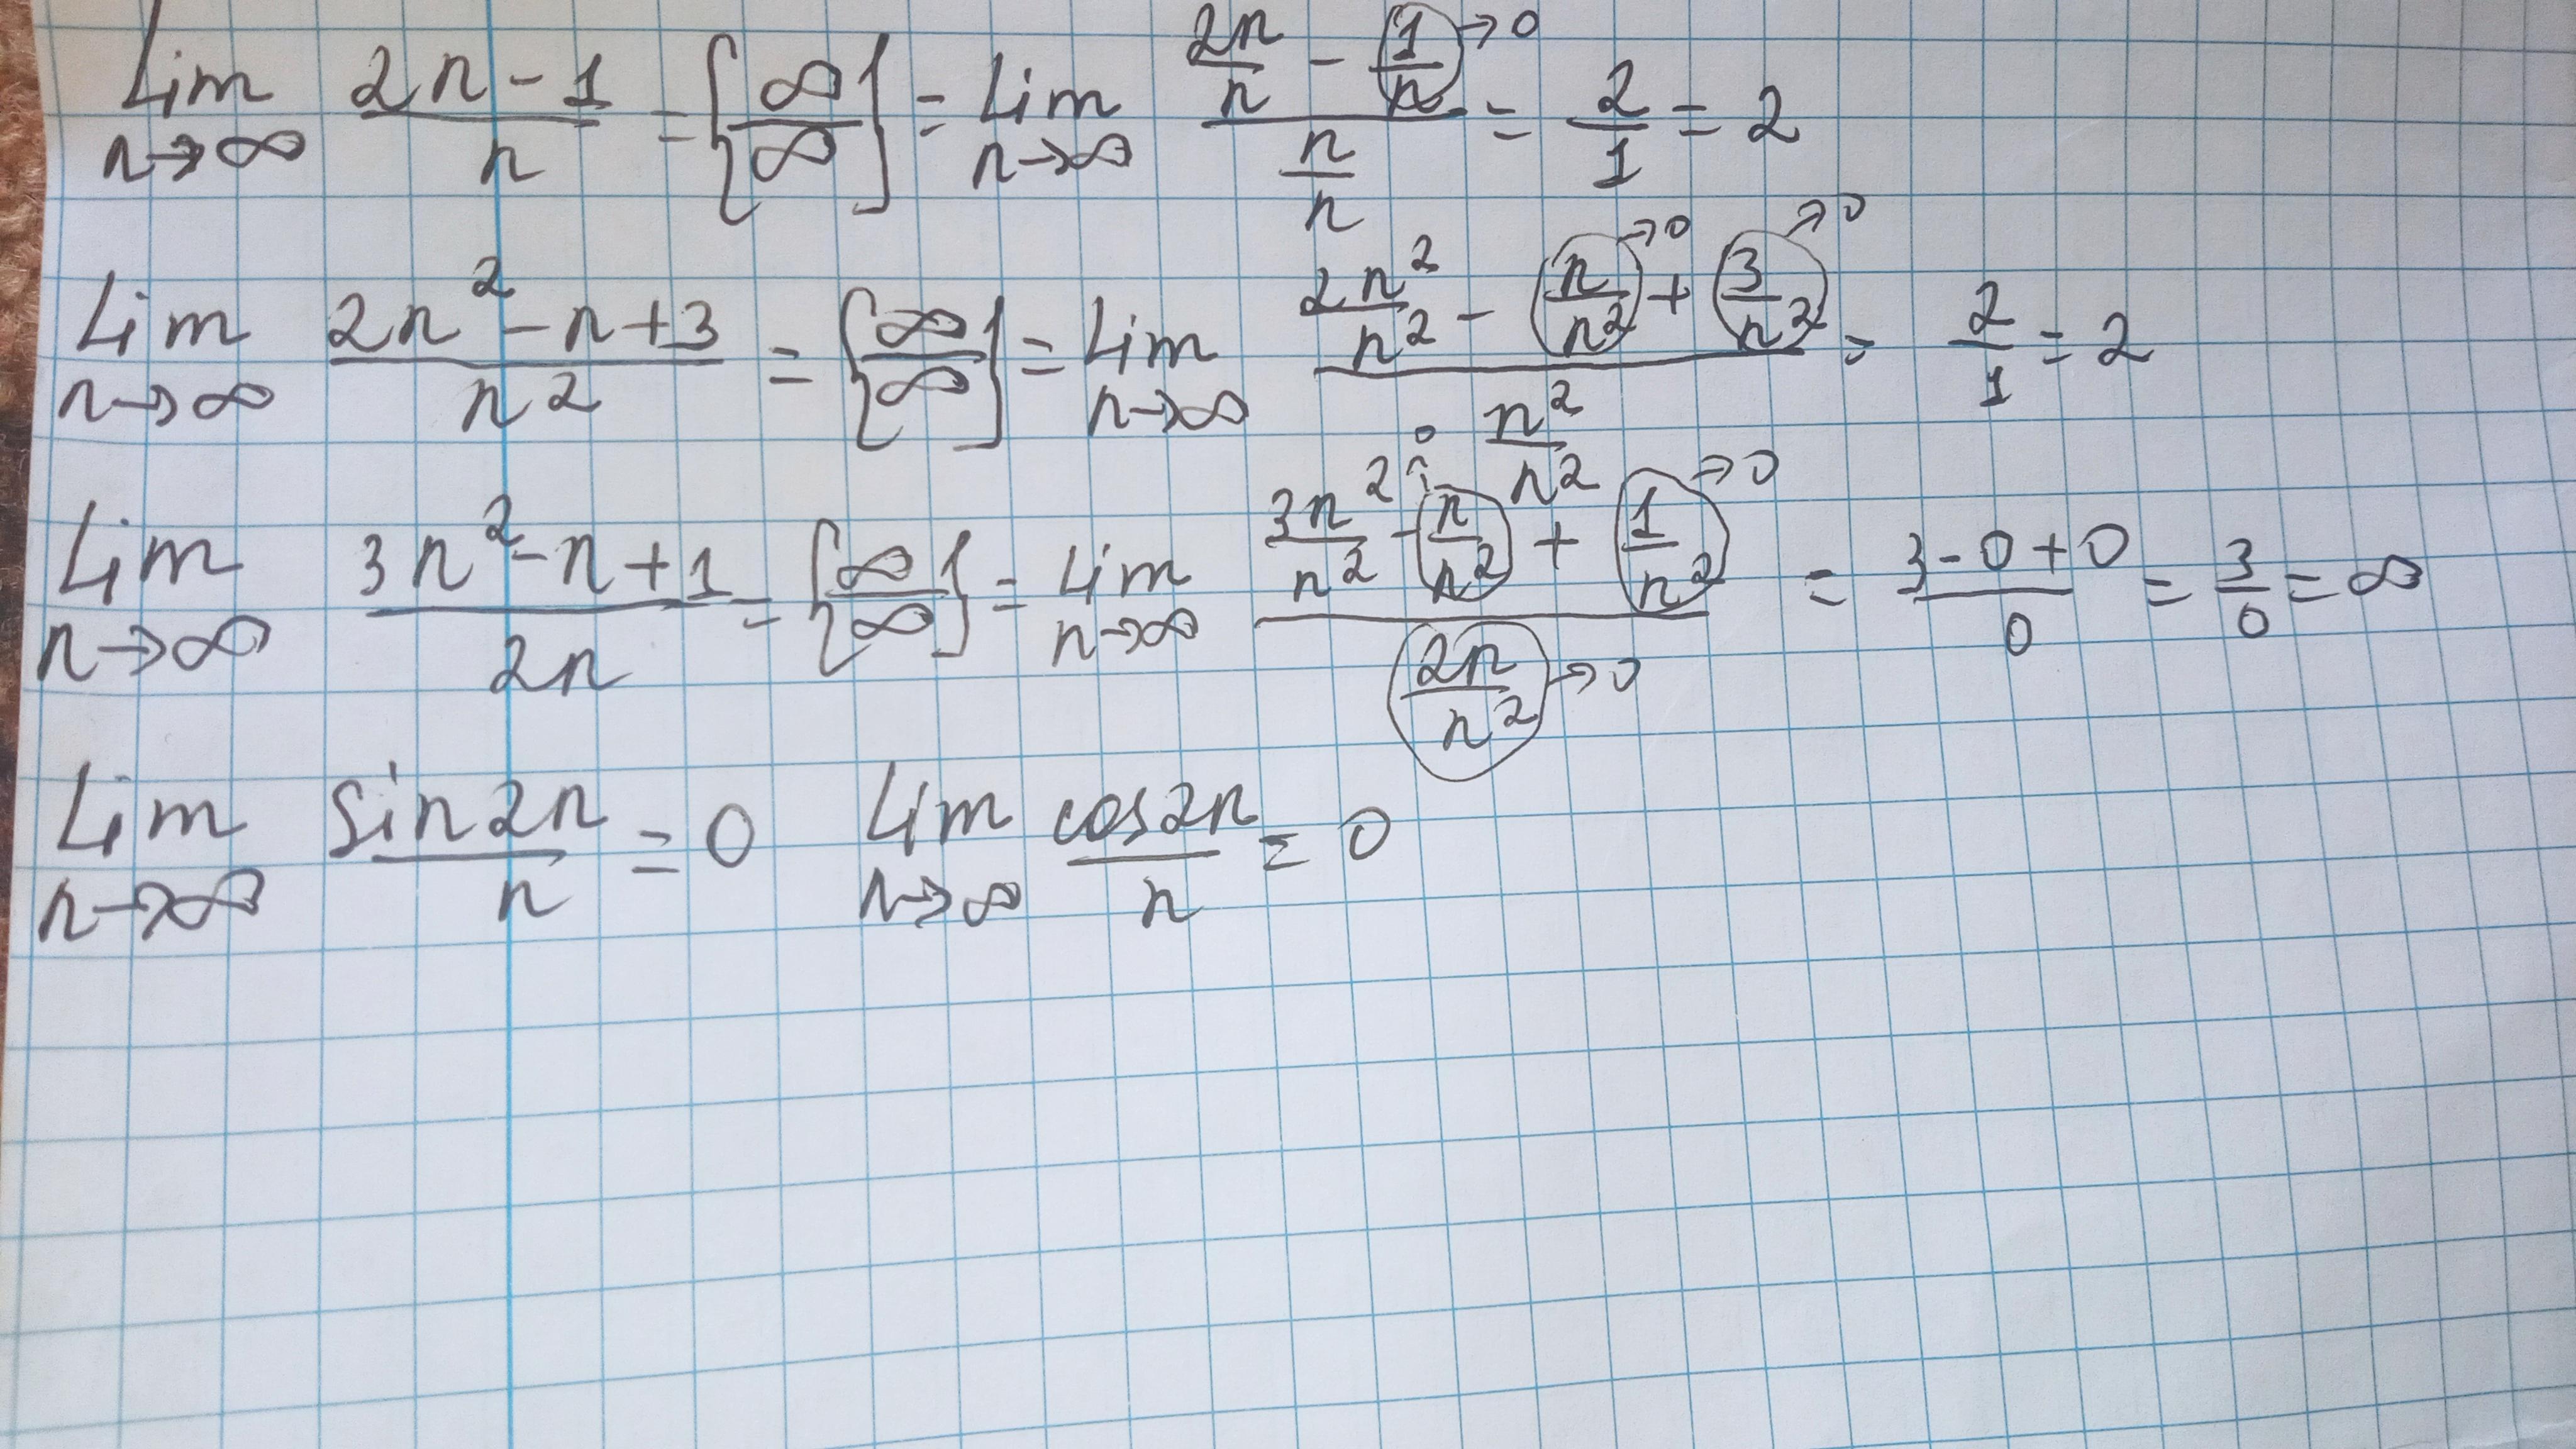 Lim n→∞ (2n-1)/n = {∞/∞} = Lim n→∞ (2n/n - 1/n →0)/(n/n) = 2/1 = 2
Lim n→∞ (2n²-n+3)/n² = {∞/∞} = Lim n→∞ (2n²/n² - n/n² →0 + 3/n² →0)/(n²/n²) = 2/1 = 2
Lim n→∞ (3n²-n+1)/2n = {∞/∞} = Lim n→∞ (3n²/n² - n/n² →0 + 1/n² →0)/(2n/n² →0) = (3-0+0)/0 = 3/0 = ∞
Lim n→∞ sin2n/n = 0 Lim n→∞ cos2n/n = 0